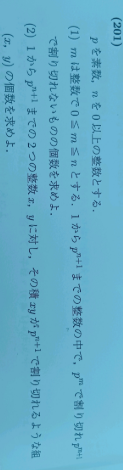 (201)
pを素数，nを0以上の整数とする．
(1) mは整数で0≦m≦nとする．1からpⁿ⁺¹までの整数の中で，pᵐで割り切れpᵐ⁺¹
で割り切れないものの個数を求めよ．
(2) 1からpⁿ⁺¹までの2つの整数x，yに対し，その積xyがpⁿ⁺¹で割り切れるような組
(x，y)の個数を求めよ．